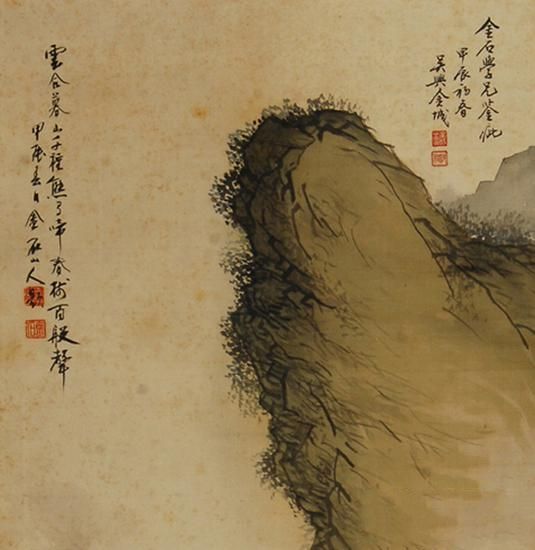 金石學兄鑒
甲辰初春
吴興金城
雲合暮山千種態鸟啼春樹百般聲
甲辰春日金石山人